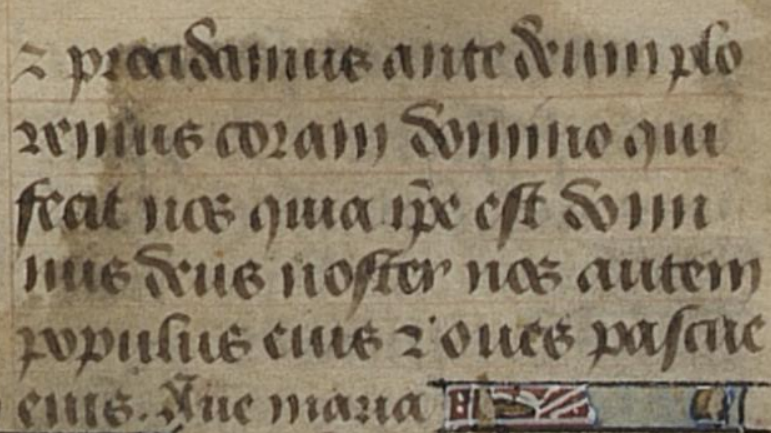 ⁊ procidamus ante deum plo
remus coram domino qui
fecit nos quia ip̄e est domi
nus deus noster nos autem
populus eius ⁊ oues pascue
eius. Aue maria